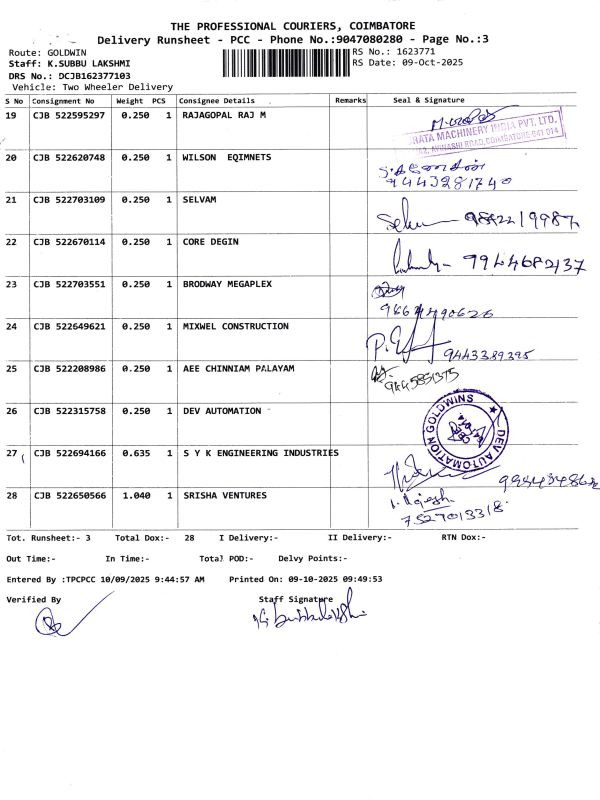 THE PROFESSIONAL COURIERS, COIMBATORE
Delivery Runsheet - PCC - Phone No.:9047080280 - Page No.:3
Route: GOLDWIN
RS No.: 1623771
Staff: K.SUBBU LAKSHMI
RS Date: 09-Oct-2025
DRS No.: DCJB162377103
Vehicle: Two Wheeler Delivery
S No Consignment No Weight PCS Consignee Details Remarks Seal & Signature
19 CJB 522595297 0.250 1 RAJAGOPAL RAJ M
MACHINERY INDIA PVT. LTD.
AVINASHI ROAD, COIMBATORE 641 014
20 CJB 522620748 0.250 1 WILSON EQIMNETS
9443281740
21 CJB 522703109 0.250 1 SELVAM
22 CJB 522670114 0.250 1 CORE DEGIN
9944682137
23 CJB 522703551 0.250 1 BRODWAY MEGAPLEX
24 CJB 522649621 0.250 1 MIXWEL CONSTRUCTION
9443389395
25 CJB 522208986 0.250 1 AEE CHINNIAM PALAYAM
26 CJB 522315758 0.250 1 DEV AUTOMATION
DEV AUTOMATION GOLDWINS
27 CJB 522694166 0.635 1 S Y K ENGINEERING INDUSTRIES
28 CJB 522650566 1.040 1 SRISHA VENTURES
Rajesh
7527013318
Tot. Runsheet:- 3 Total Dox:- 28 I Delivery:- II Delivery:- RTN Dox:-
Out Time:- In Time:- Total POD:- Delvy Points:-
Entered By :TPCPCC 10/09/2025 9:44:57 AM Printed On: 09-10-2025 09:49:53
Verified By Staff Signature